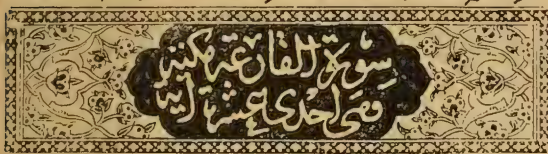 سورة القارعة مكية
وهى احدى عشرة آية